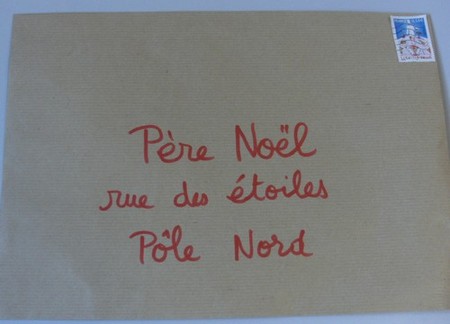 Père Noël
rue des étoiles
Pôle Nord